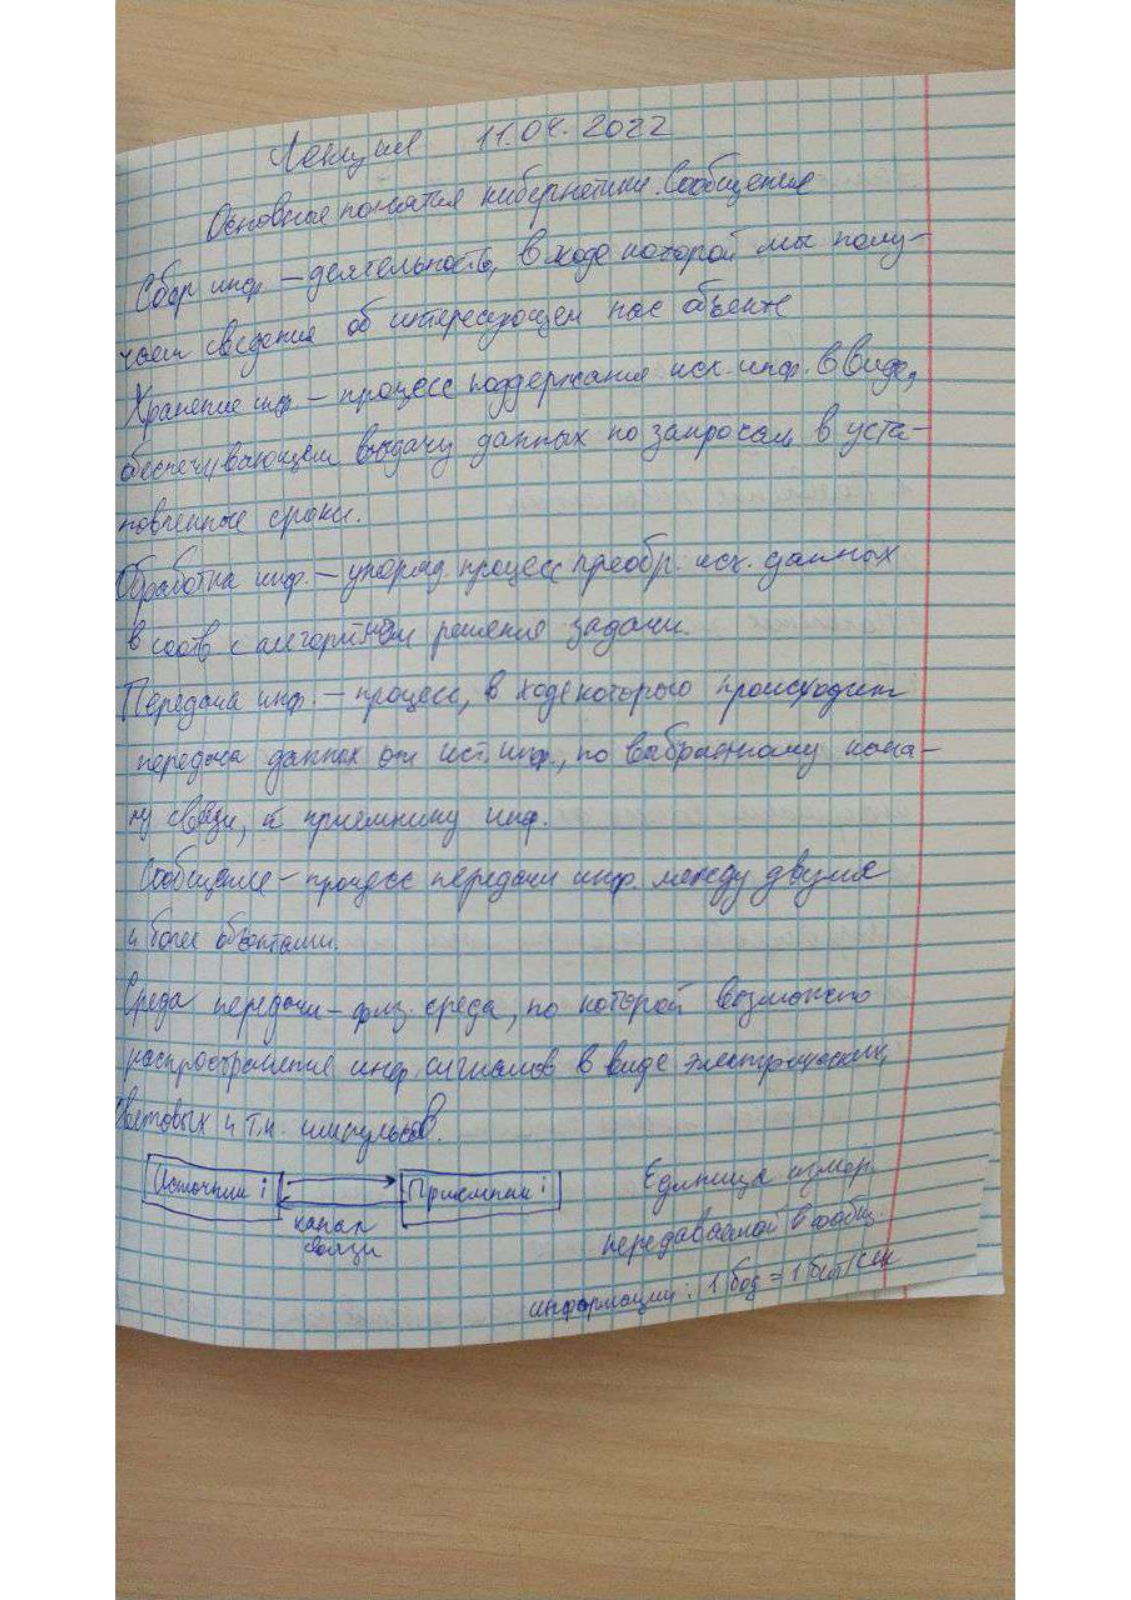 Лекция 11.04.2022
Основные понятия кибернетики. Сообщения
Сбор инф – деятельность, в ходе которой мы полу-
чаем сведения об интересующем нас объекте
Хранение инф. – процесс поддержания исх. инф. в виде,
обеспечивающем выдачу данных по запросам в уста-
новленные сроки.
Обработка инф. – упоряд процесс преобр. исх. данных
в соотв с алгоритмом решения задачи.
Передача инф. – процесс, в ходе которого происходит
передача данных от ист. инф., по выбранному кана-
лу связи, к приемнику инф.
Сообщение – процесс передачи инф. между двумя
и более объектами.
Среда передачи – физ. среда, по которой возможно
распространение инф. сигналов в виде электрических,
световых и т.п. импульсов.
Источник i
Приемник i
канал
связи
Единица измер.
передаваемой в сообщ.
информации: 1 бод = 1 бит/сек